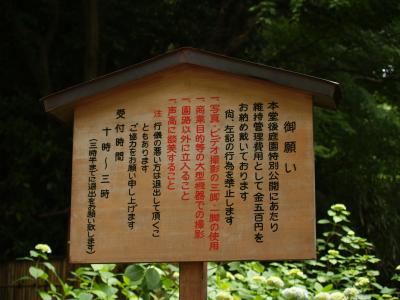 御願い
本堂後庭園特別公開にあたり
維持管理費用として金五百円を
お納め戴いております
尚、左記の行為を禁止します
「写真・ビデオ撮影の三脚・一脚の使用
「商業目的等の大型機器での撮影
「園路以外に立入ること
「声高に談笑すること
注 行儀の悪い方は退出して頂くこ
ともあります
ご協力をお願い申し上げます
受付時間
十時〜三時
(三時半までに退出をお願い致します)